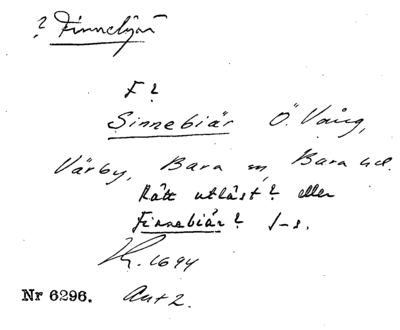 ? Finnebjär
F?
Sinnebiär Ö. Vång,
Värby, Bara sn, Bara hd.
Rätt utläst? eller
Finnebiär? f-s.
1694
Nr 6296. Ant 2.